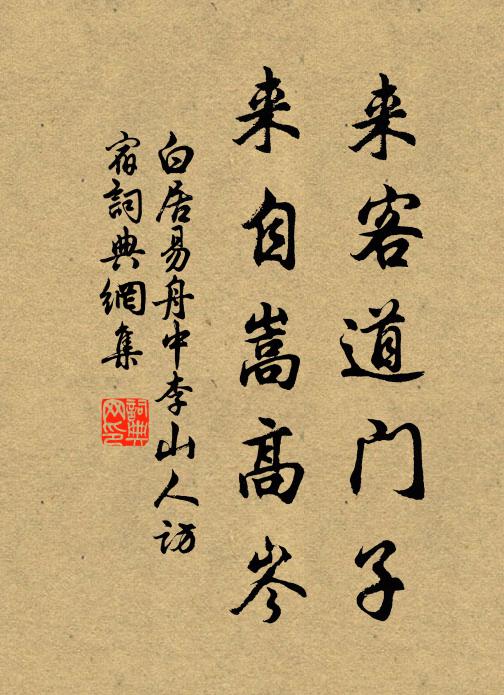 来客道门子
来自嵩高岑
白居易舟中李山人访
宿詞典網集
詞典网印